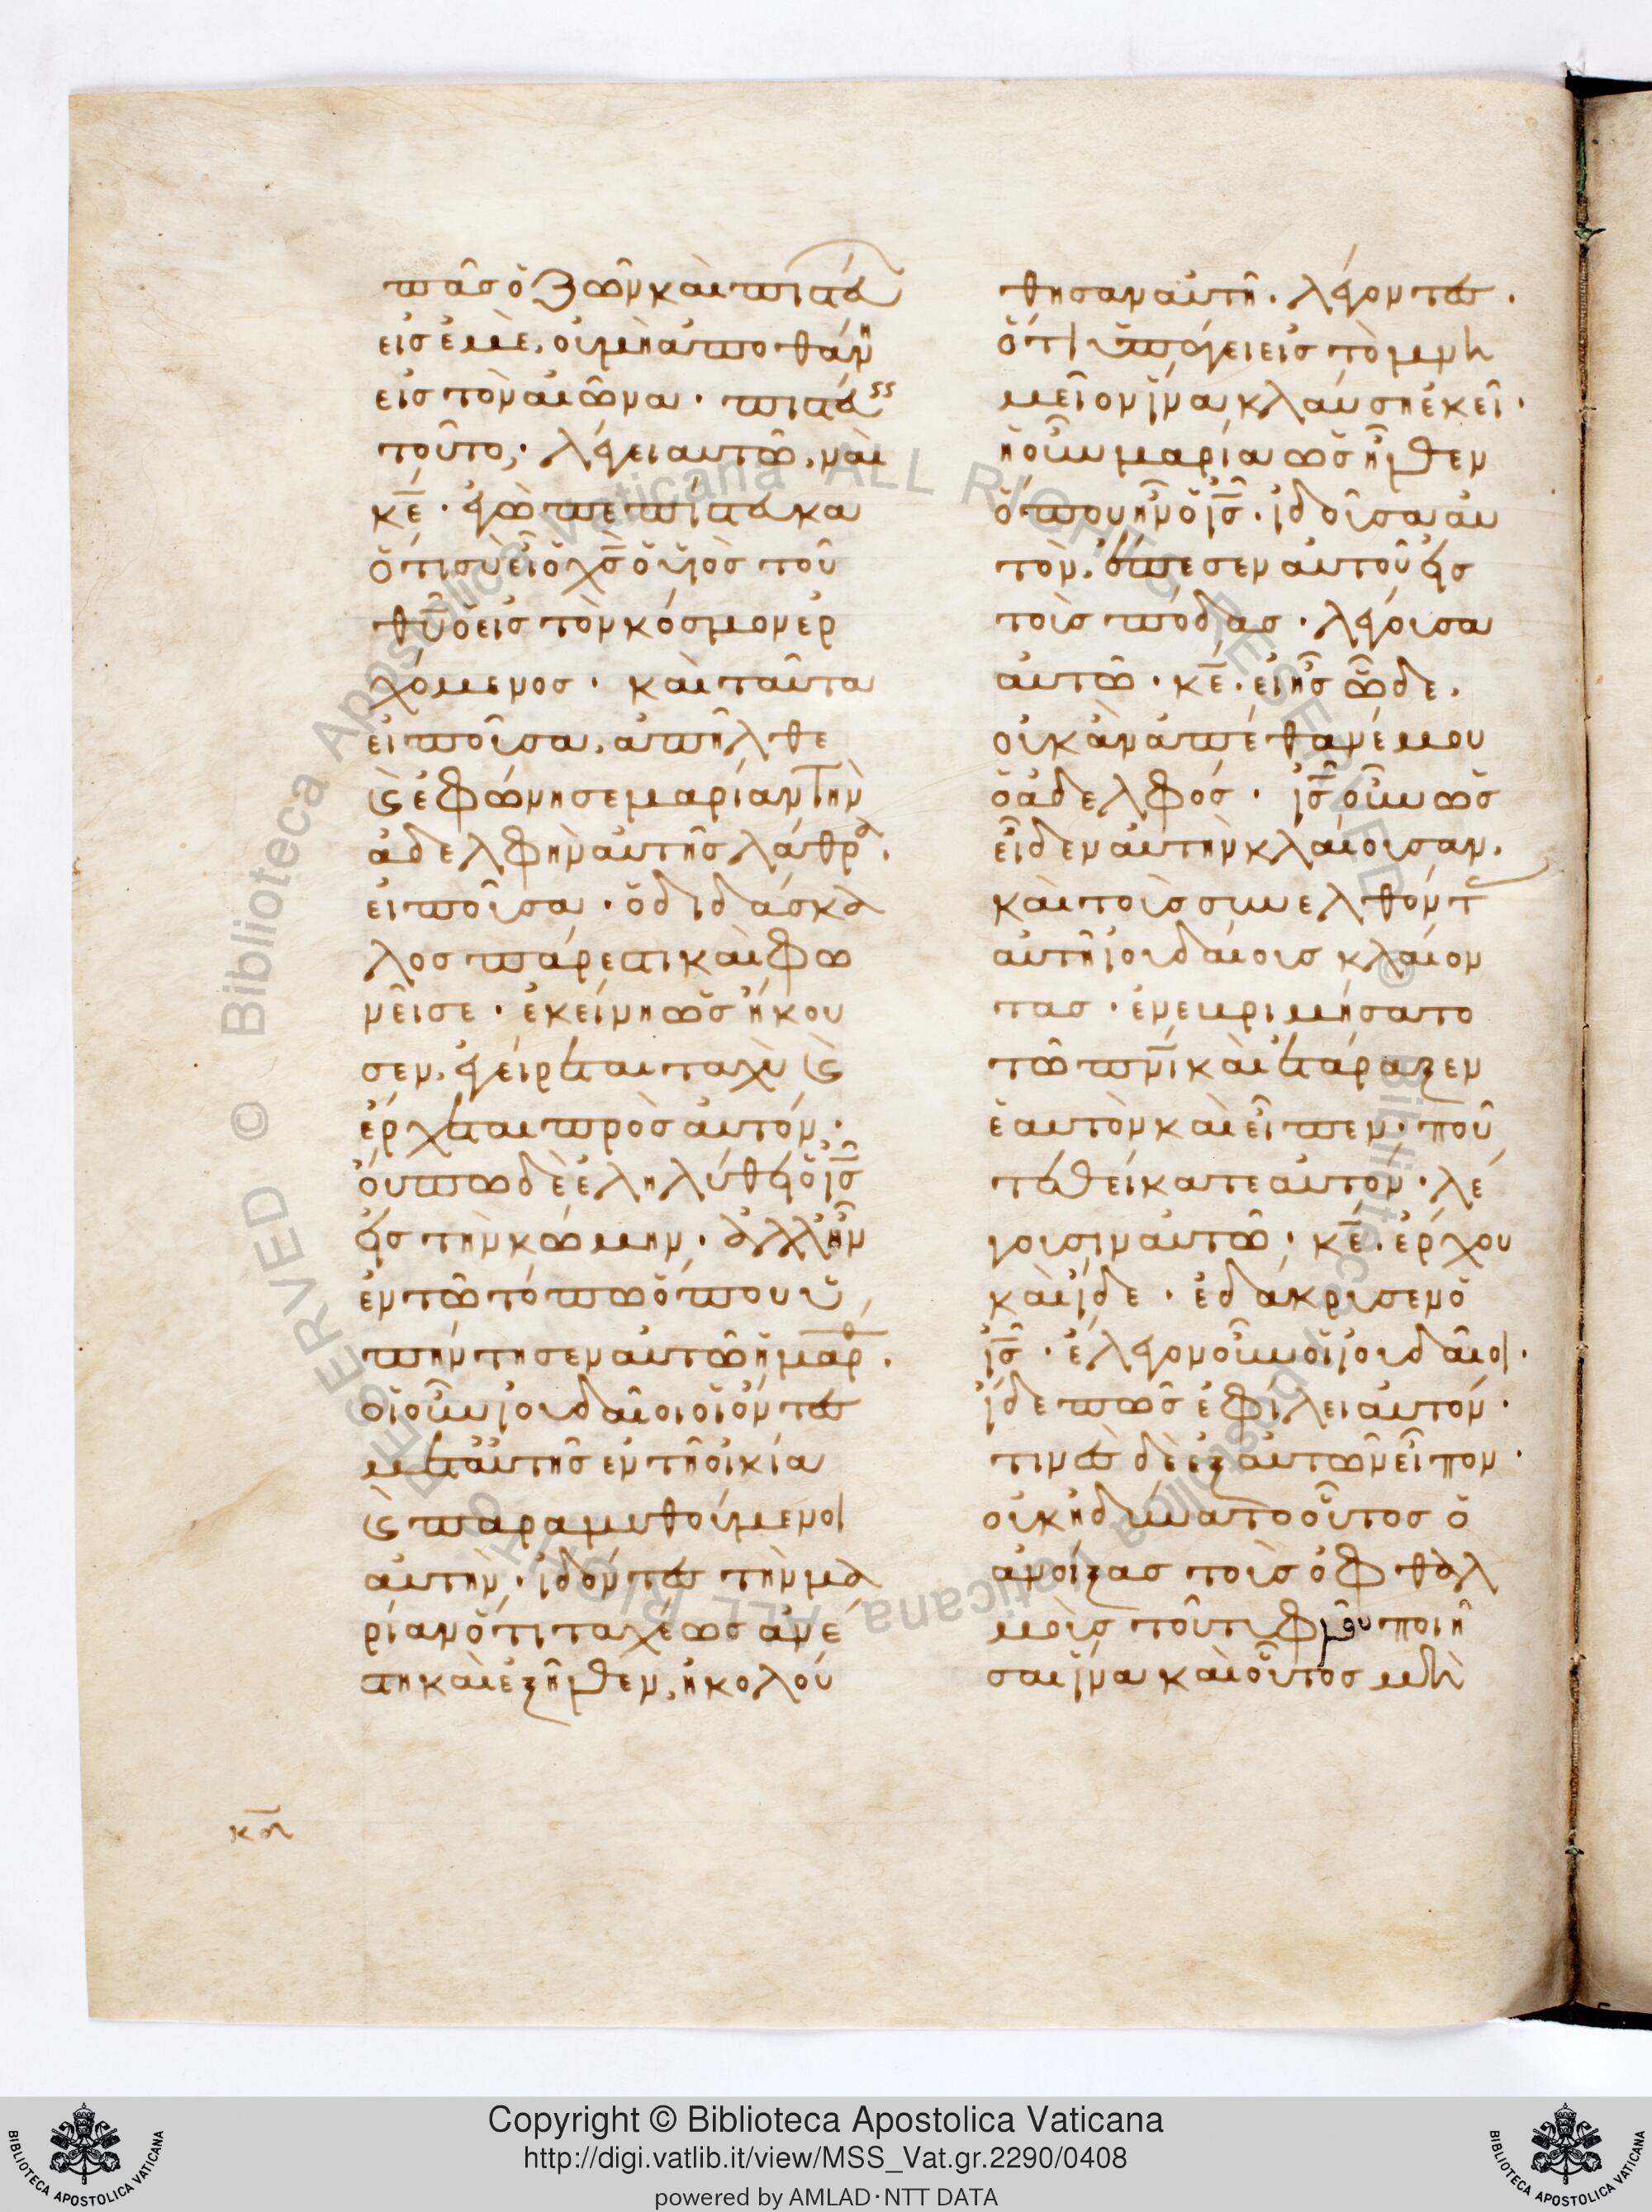 πᾶσ ὁ ζῶν καὶ πιστεύ
εἰσ ἐμὲ, οὐ μὴ ἀποθάνη
εἰσ τὸν αἰῶνα · πιστεύεισ
τοῦτο, · λέγει αυτῶ, ναὶ
κε̅ · ἐγὼ πεπίστευκα
ὅτι σὺ εἶ ὁ χσ̅ ὁ ὑϊὸσ τοῦ
θυ̅ ὁ εἰσ τὸν κόσμον ἐρ
χόμενοσ · καὶ ταῦτα
εἰποῦσα, ἀπῆλθε
ϗ̀ ἐφώνησε μαρίαν τὴν
ἀδελφὴν αυτῆσ λάθρα ·
εἰποῦσα · ὁ διδάσκα
λοσ πάρεστι καὶ φω
νεῖ σε · ἐκείνη ὡσ ἤκου
σεν, ἐγείρεται ταχὺ ϗ̀
ἔρχεται πρὸσ αὐτόν ·
ὄυπω δὲ ἐληλύθει ὁ ἰσ̅
εἰσ τὴν κώμην · ἀλλ ἦν
ἐν τῶ τόπω ὅπου ὑ
πήντησεν αυτῶ ἡ μάρθ ·
οἱ οὖν ἰουδαῖοι οἱ ὄντεσ
μετ αὐτῆσ ἐν τῆ οἰκία
ϗ̀ παραμυθούμενοι
αὐτὴν · ἰδόντεσ τὴν μα
ρίαν ὅτι ταχέωσ ἀνέ
στη καὶ ἐξῆλθεν, ἠκολού
κα̅
θησαν αὐτῆ · λέγοντεσ ·
ὅτι ὑπάγει εἰσ τὸ μνη
μεῖον ἵνα κλαύση ἐκεῖ ·
ἡ οὖν μαρία ὡσ ἦλθεν
ὅπου ἦν ὁ ἰσ̅ · ἰδοῦσα αυ
τὸν, ἔπεσεν αυτοῦ εἰσ
τοὺσ πόδασ · λέγουσα
αὐτῶ · κε̅ · εἰ ἦσ ὧδε,
οὐκ ἂν ἀπέθανέ μου
ὁ ἀδελφόσ · ἰσ̅ οὖν ὡσ
εἶδεν αὐτὴν κλαίουσαν,
καὶ τοὺσ συνελθόντασ
αυτῆ ἰουδαίουσ κλαίον
τασ · ἐνεμβριμήσατο
τῶ πνι̅ καὶ ἐτάραξεν
ἑαυτὸν καὶ εἶπεν · ποῦ
τεθείκατε αυτόν · λέ
γουσιν αυτῶ · κε̅ · ἔρχου
καὶ ἴδε · ἐδάκρυσεν ὁ
ἰσ̅ · ἔλεγον οὖν οἱ ἰουδαῖοι ·
ἴδε πῶσ ἐφίλει αὐτόν ·
τινὲσ δὲ ἐξ αυτῶν εἶπον ·
οὐκ ἠδύνατο οὗτοσ ὁ
ἀνοίξασ τοὺσ ὀφθαλ
μοὺσ τοῦ τυφλοῦ ποιῆ
σαι ἵνα καὶ οὗτοσ μὴ
Copyright © Biblioteca Apostolica Vaticana
http://digi.vatlib.it/view/MSS_Vat.gr.2290/0408
powered by AMLAD·NTT DATA
BIBLIOTECA APOSTOLICA VATICANA
BIBLIOTECA APOSTOLICA VATICANA
© Biblioteca Apostolica Vaticana ALL RIGHTS RESERVED © Biblioteca Apostolica Vaticana ALL RIGHTS RESERVED